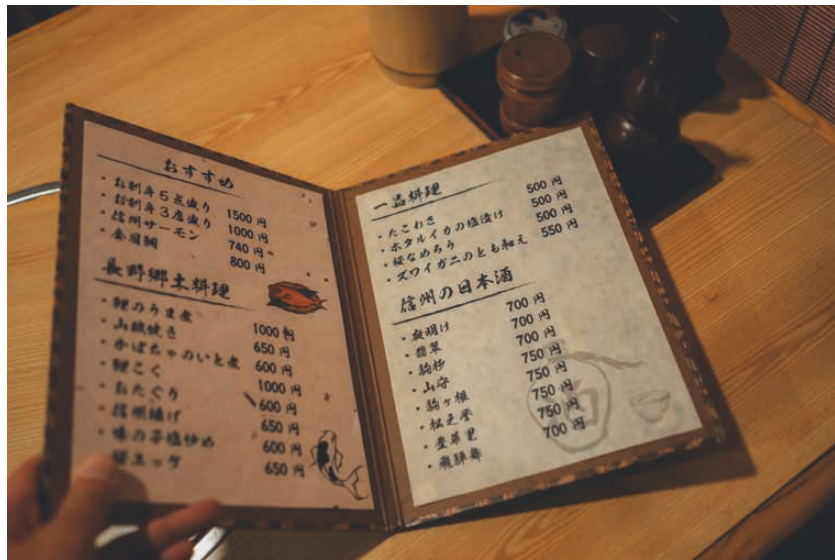 おすすめ
・お刺身5点盛り 1500円
・お刺身3点盛り 1000円
・信州サーモン 740円
・金目鯛 800円
長野郷土料理
・鯉のうま煮 1000円
・山賊焼き 650円
・かぼちゃのいと煮 600円
・鯉こく 1000円
・おたぐり 600円
・信州揚げ 650円
・味の芋塩炒め 600円
・桜ユッケ 650円
一品料理
・たこわさ 500円
・ホタルイカの塩漬け 500円
・桜なめろう 500円
・ズワイガニのとも和え 550円
信州の日本酒
・夜明け 700円
・翡翠 700円
・騎極 700円
・山守 750円
・駒ヶ根 750円
・松 750円
・里 750円
・飛騨舞 700円
酒